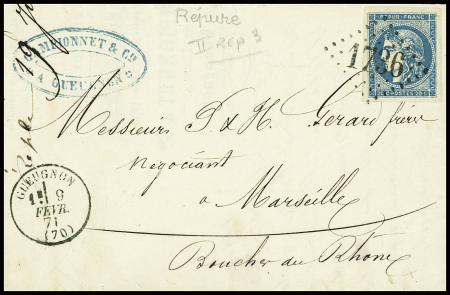 Répure
II Rep 3
CAMPIONNET & Cie
A GUEUGNON
REPUB. FRANC.
1736
Messieurs P & H. Gerard frères
négociant
a Marseille
Bouches du Rhône
GUEUGNON
9
FEVR.
71
(70)